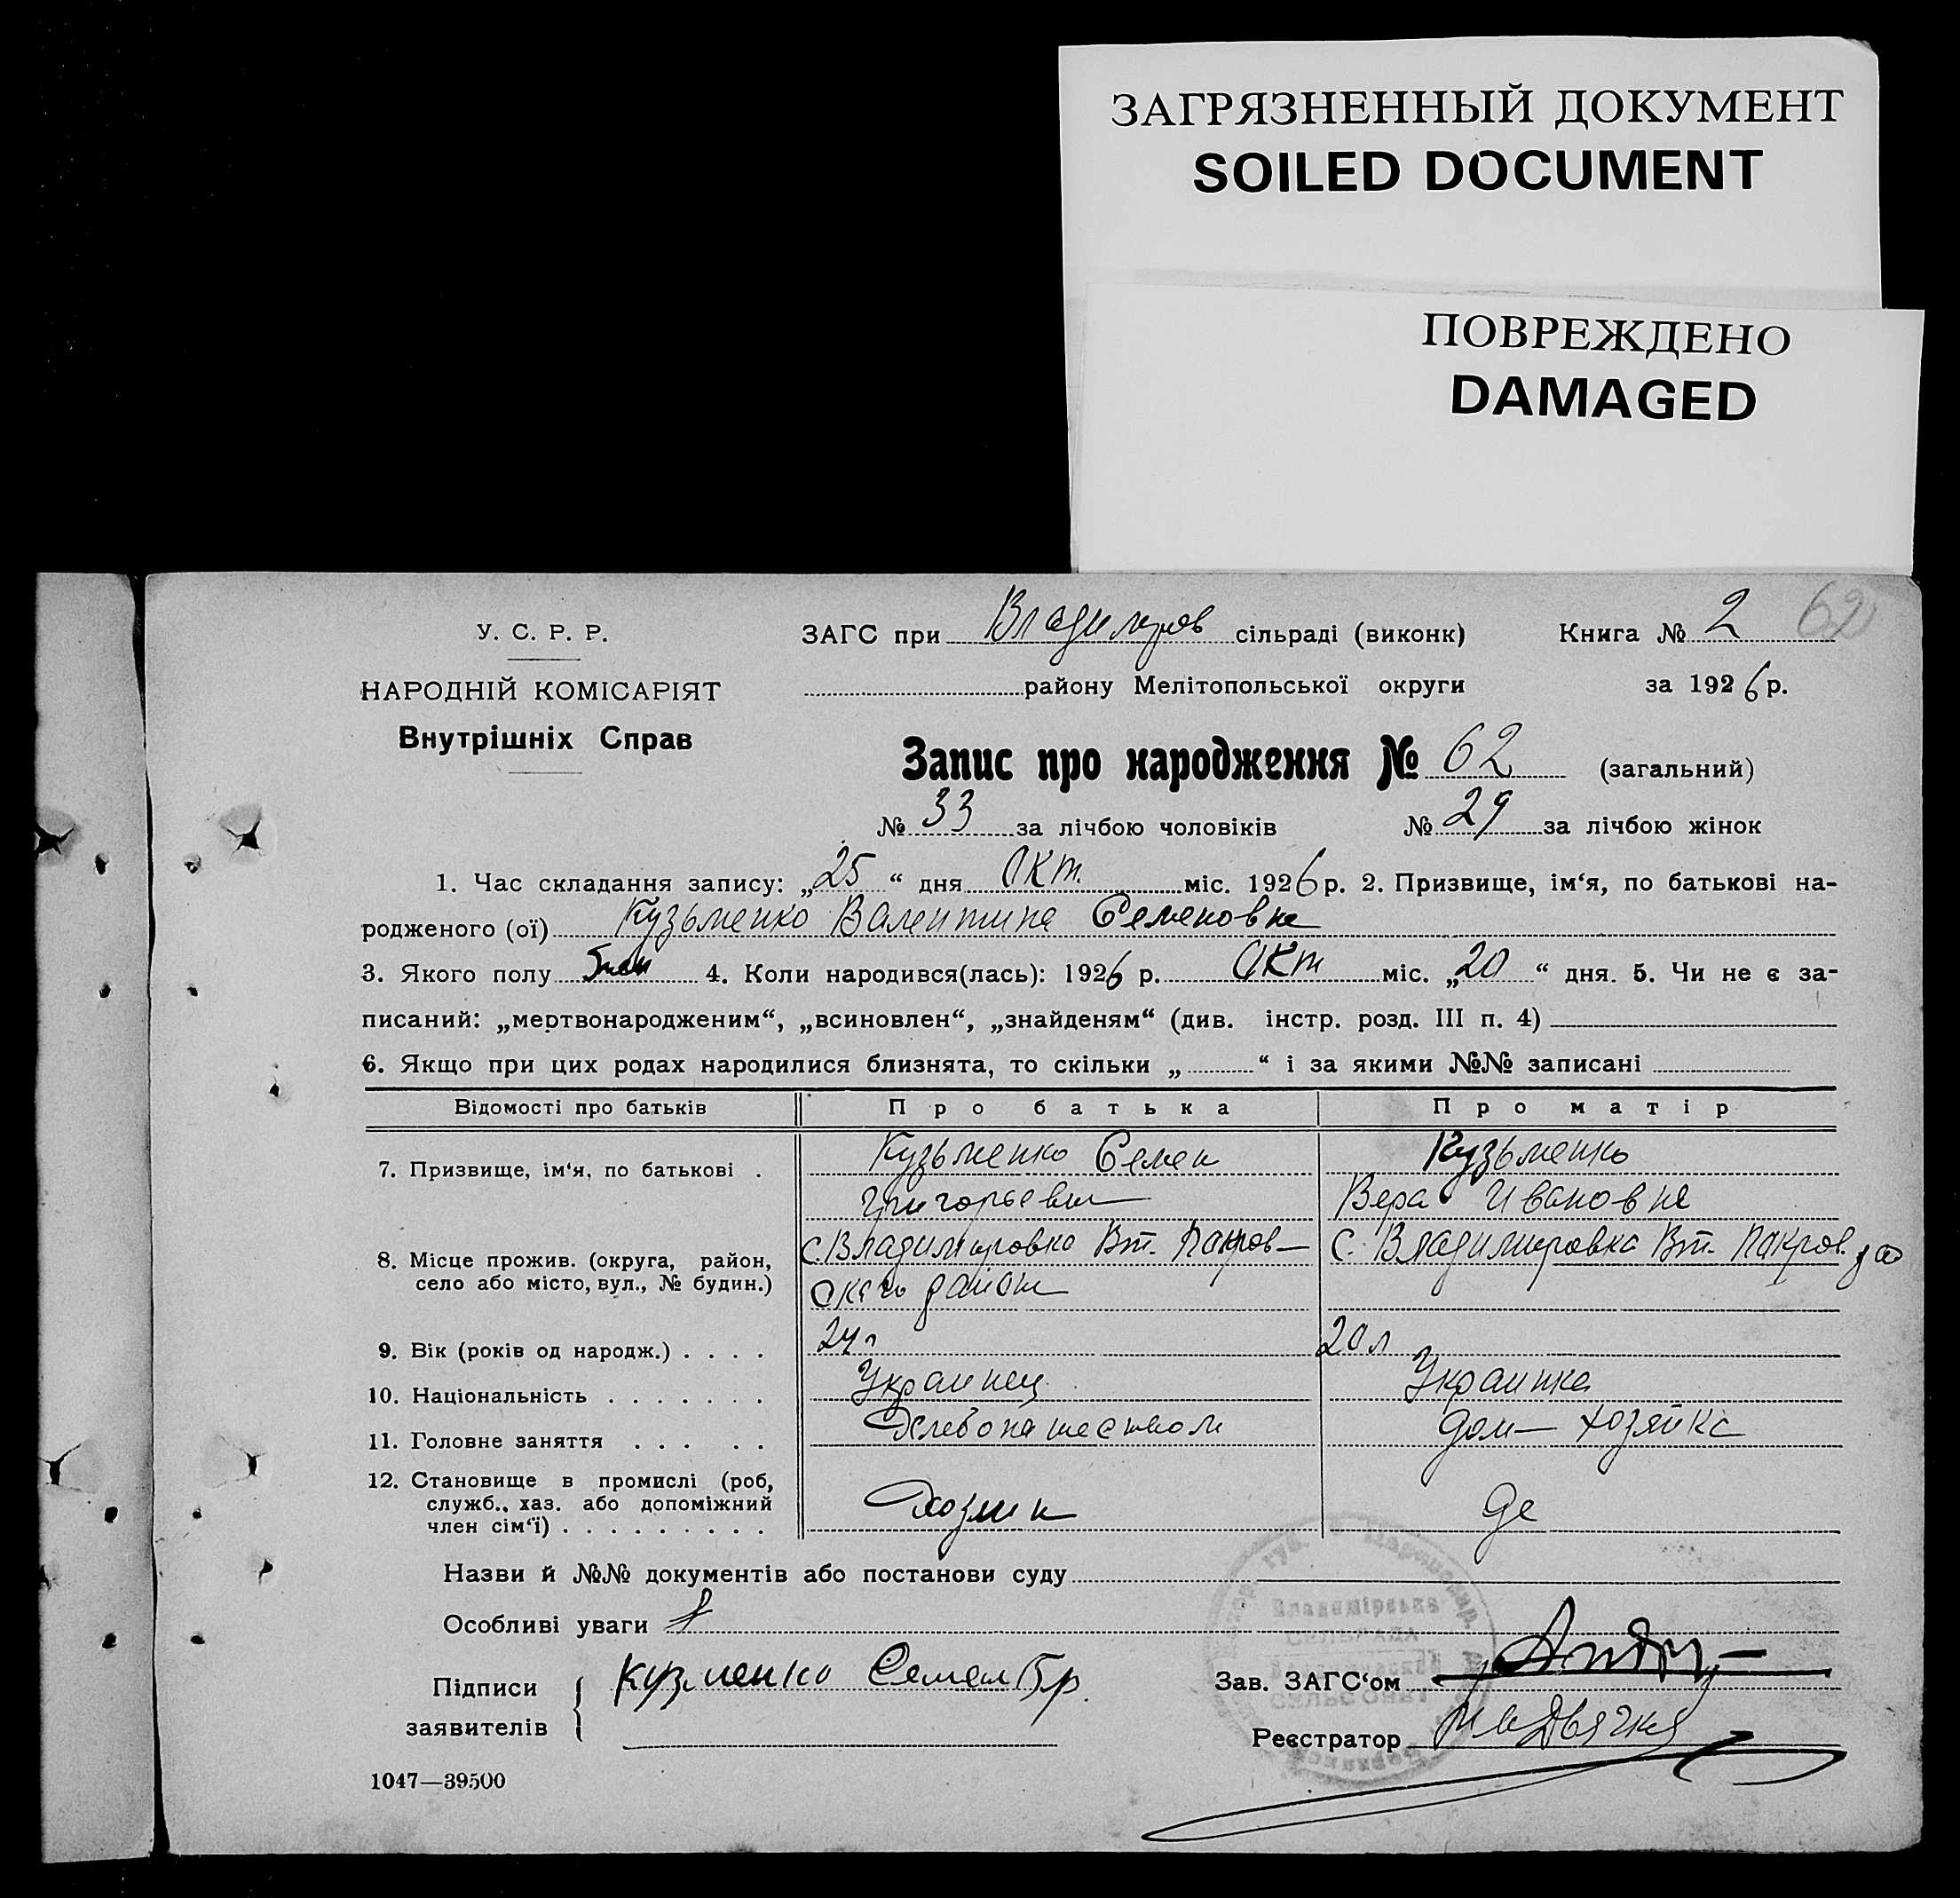 ЗАГРЯЗНЕННЫЙ ДОКУМЕНТ
SOILED DOCUMENT
ПОВРЕЖДЕНО
DAMAGED
У. С. Р. Р.
НАРОДНІЙ КОМІСАРІЯТ
Внутрішніх Справ
ЗАГС при Владимиров сільраді (виконк) Книга № 2 62
району Мелітопольської округи за 1926 р.
Запис про народження № 62 (загальний)
№ 33 за лічбою чоловіків № 29 за лічбою жінок
1. Час складання запису: „25“ дня Окт. міс. 1926 р. 2. Призвище, ім‘я, по батькові на-
родженого (ої) Кузьменко Валентина Семеновна
3. Якого полу 4. Коли народився(лась): 1926 р. Окт міс. „20“ дня. 5. Чи не є за-
писаний: „мертвонародженим“, „всиновлен“, „знайденям“ (див. інстр. розд. III п. 4)
6. Якщо при цих родах народилися близнята, то скільки „ “ і за якими №№ записані
Відомості про батьків Про батька Про матір
7. Призвище, ім‘я, по батькові . Кузьменко Семен Кузьменко
Григорьевич Вера Ивановна
8. Місце прожив. (округа, район, село або місто, вул., № будин.) с. Владимировка Вт. Покров— с. Владимировка Вт. Покров.
ского района
9. Вік (років од народж.) . . . . 24 г 20 л
10. Національність . . . . . . . Украинец Украинка
11. Головне заняття . . . . . Хлебопашеством дом— хозяйка
12. Становище в промислі (роб, служб., хаз. або допоміжний член сім‘ї) . . . . . . . . . Хозяин
Назви й №№ документів або постанови суду
Особливі уваги
Підписи заявителів Кузменко Семен Гр.
Зав. ЗАГС‘ом
Реєстратор
1047—39500